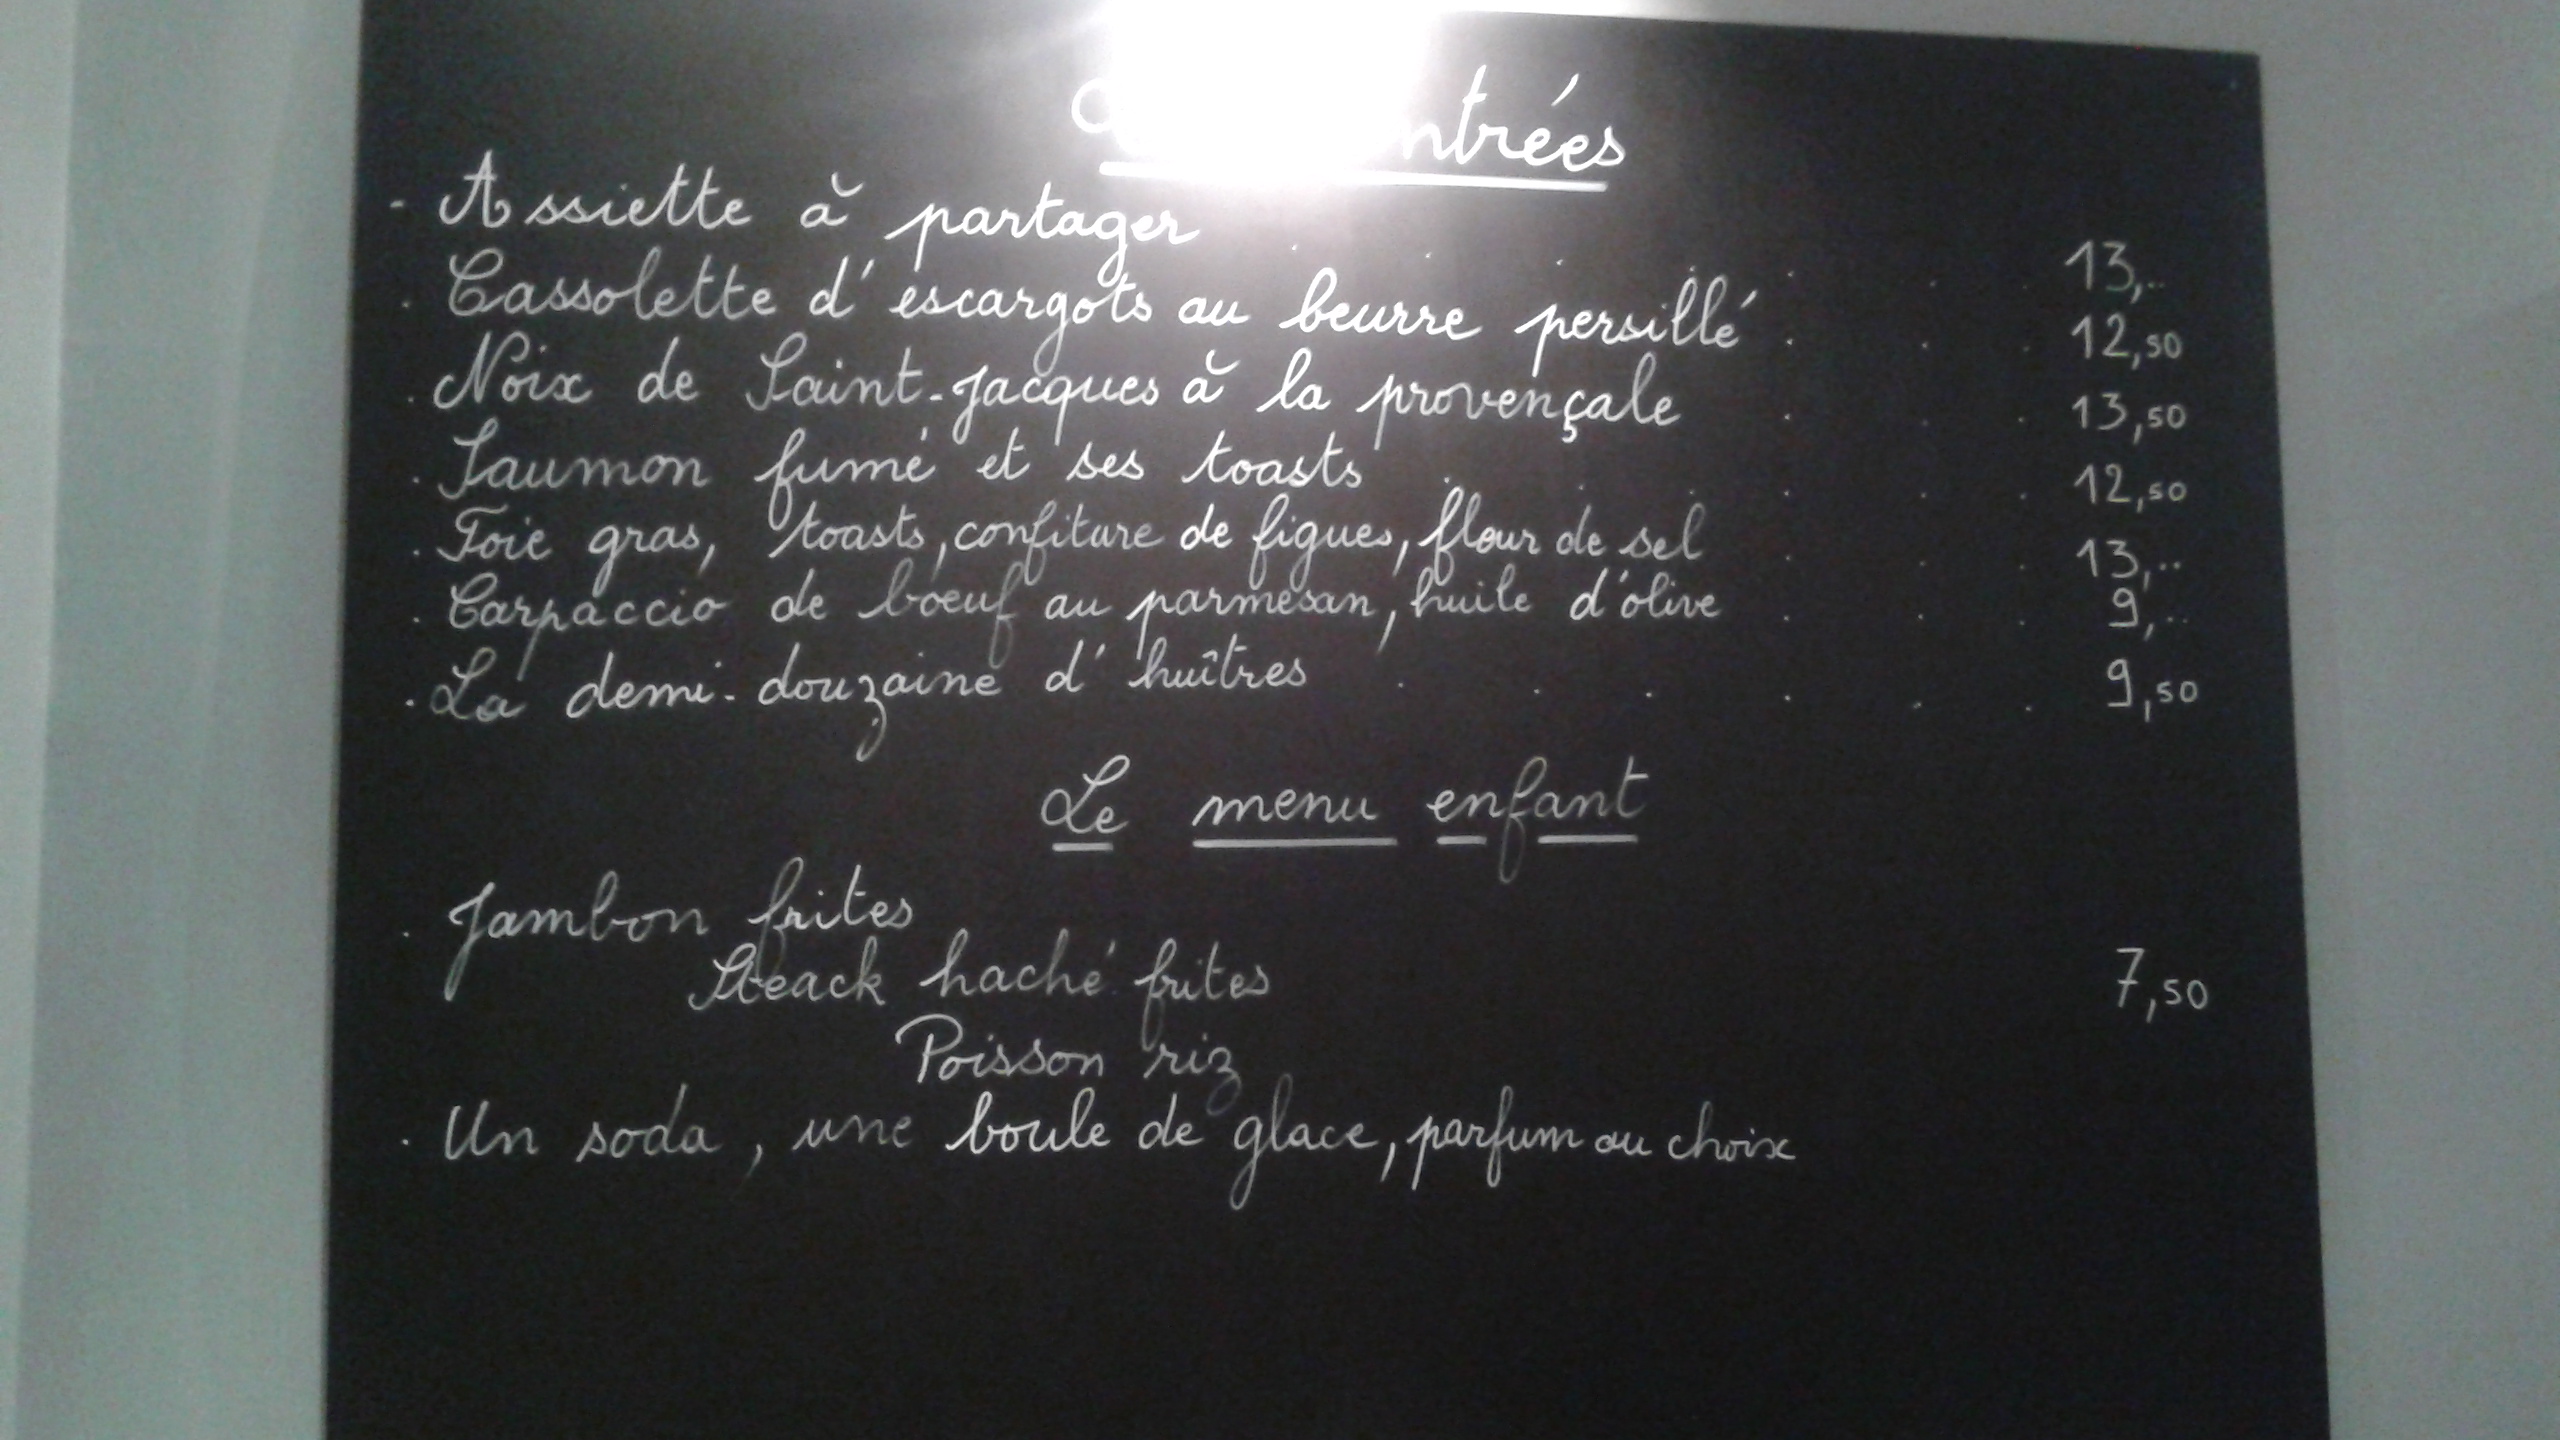 - Assiette à partager . . . . . 13,..
. Cassolette d'escargots au beurre persillé . . . 12,50
. Noix de Saint-Jacques à la provençale . . . 13,50
. Saumon fumé et ses toasts . . . . . . 12,50
. Foie gras, toasts, confiture de figues, fleur de sel . . . 13,..
. Carpaccio de boeuf au parmesan, huile d'olive . . . 9,..
. La demi-douzaine d'huîtres . . . . . . 9,50
Le menu enfant
. Jambon frites
Steack haché frites 7,50
Poisson riz
. Un soda, une boule de glace, parfum au choix